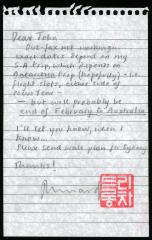 Dear John
Our fax not working -
exact dates depend on my
S.A trip, which depends on
Antarctica trip (hopefully) i.e.
flight slots, either side of
New Year -
- but will probably be
end of February to Australia
I'll let you know, when I
know...
Please send wall plan for Sydney
Thanks!
Richard